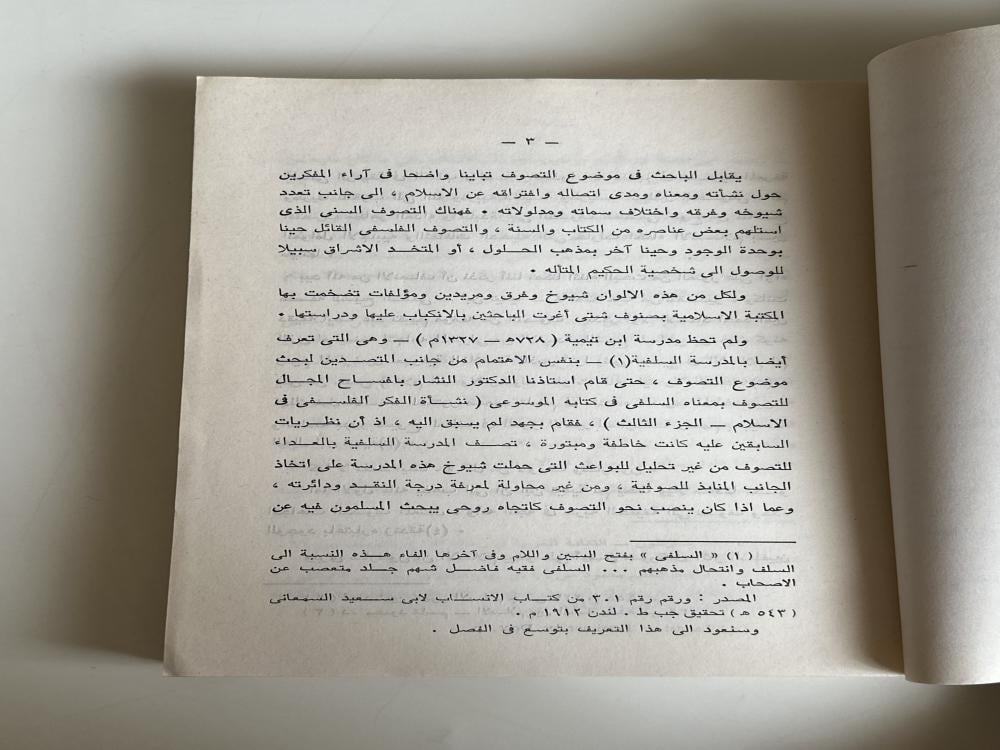 — ٣ —
يقابل الباحث فى موضوع التصوف تباينا واضحا فى آراء المفكرين
حول نشأته ومعناه ومدى اتصاله وافتراقه عن الاسلام ، الى جانب تعدد
شيوخه وفرقه واختلاف سماته ومدلولاته . فهناك التصوف السنى الذى
استلهم بعض عناصره من الكتاب والسنة ، والتصوف الفلسفى القائل حينا
بوحدة الوجود وحينا آخر بمذهب الحلول ، أو المتخذ الاشراق سبيلا
للوصول الى شخصية الحكيم المتأله .
ولكل من هذه الالوان شيوخ وفرق ومريدين ومؤلفات تضخمت بها
المكتبة الاسلامية بصنوف شتى أغرت الباحثين بالانكباب عليها ودراستها .
ولم تحظ مدرسة ابن تيمية ( ٧٢٨هـ — ١٣٢٧م ) — وهى التى تعرف
أيضا بالمدرسة السلفية(١) — بنفس الاهتمام من جانب المتصدين لبحث
موضوع التصوف ، حتى قام استاذنا الدكتور النشار بافساح المجال
للتصوف بمعناه السلفى فى كتابه الموسوعى ( نشأة الفكر الفلسفى فى
الاسلام — الجزء الثالث ) ، فقام بجهد لم يسبق اليه ، اذ أن نظريات
السابقين عليه كانت خاطفة ومبتورة ، تصف المدرسة السلفية بالعداء
للتصوف من غير تحليل للبواعث التى حملت شيوخ هذه المدرسة على اتخاذ
الجانب المنابذ للصوفية ، ومن غير محاولة لمعرفة درجة النقد ودائرته ،
وعما اذا كان ينصب نحو التصوف كاتجاه روحى يبحث المسلمون فيه عن
(١) « السلفى » بفتح السين واللام وفى آخرها الفاء هذه النسبة الى
السلف وانتحال مذهبهم ... السلفى فقيه فاضل شهم جلد متعصب عن
الاصحاب .
المصدر : ورقم رقم ٣٠١ من كتاب الانساب لابى سعيد السمعانى
( ٥٤٣ هـ ) تحقيق جب ط . لندن ١٩١٢ م .
وسنعود الى هذا التعريف بتوسع فى الفصل .